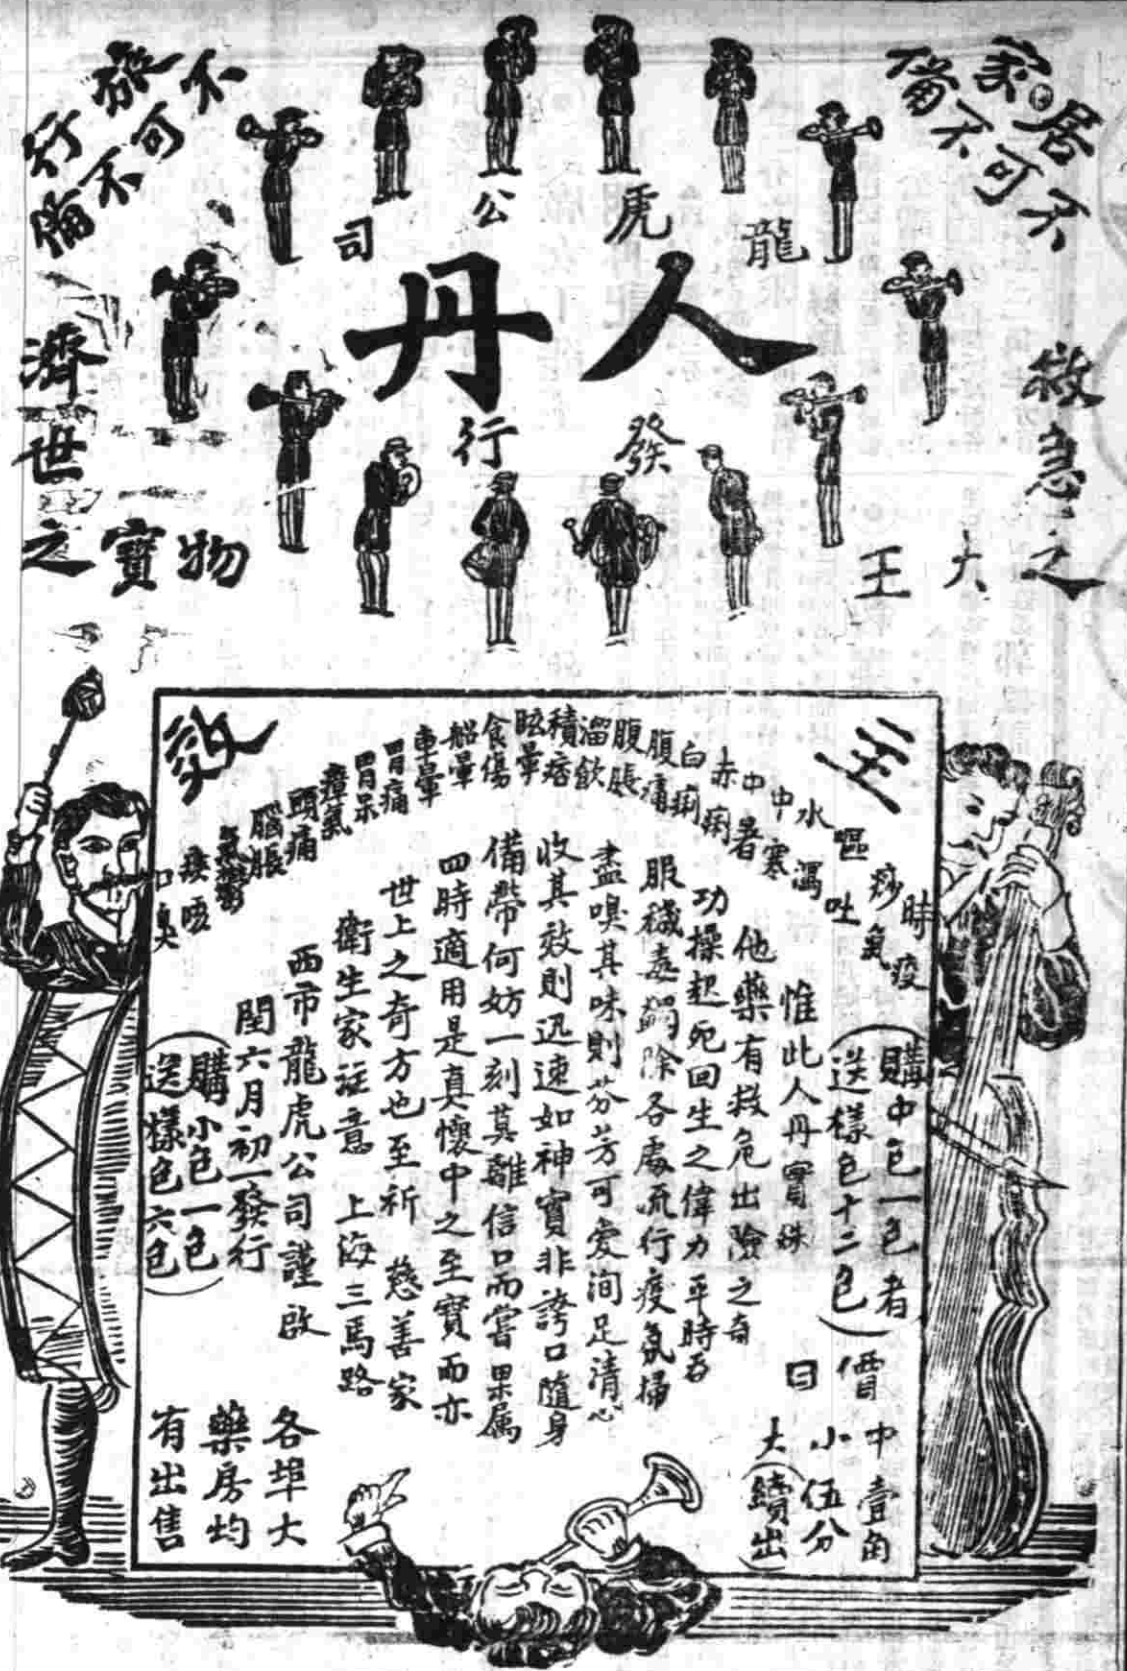 家居不可不備
旅行不可不備
龍虎公司
人丹
發行
救急之大王
濟世之寶物
主
效
時疫
痧氣
嘔吐
水瀉
中寒
中暑
赤痢
白痢
腹痛
腹脹
溜飲
積痞
眩暈
食傷
船暈
車暈
胃痛
胃呆
瘴氣
頭痛
腦脹
痰咳
口臭
購中包一包者
送樣包十二包
惟此人丹實殊
他藥有救危出險之奇
功操起死回生之偉力平時吞
服穢毒蠲除各處流行疫氛掃
盡嗅其味則芬芳可愛洵足清心
收其效則迅速如神實非誇口隨身
備帶何妨一刻莫離信口而嘗果屬
四時適用是真懷中之至寶而亦
世上之奇方也至祈 慈善家
衛生家注意 上海三馬路
西市龍虎公司謹啟
閏六月初一發行
購小包一包
送樣包六包
價目
中壹角
小伍分
大(續出)
各埠大
藥房均
有出售